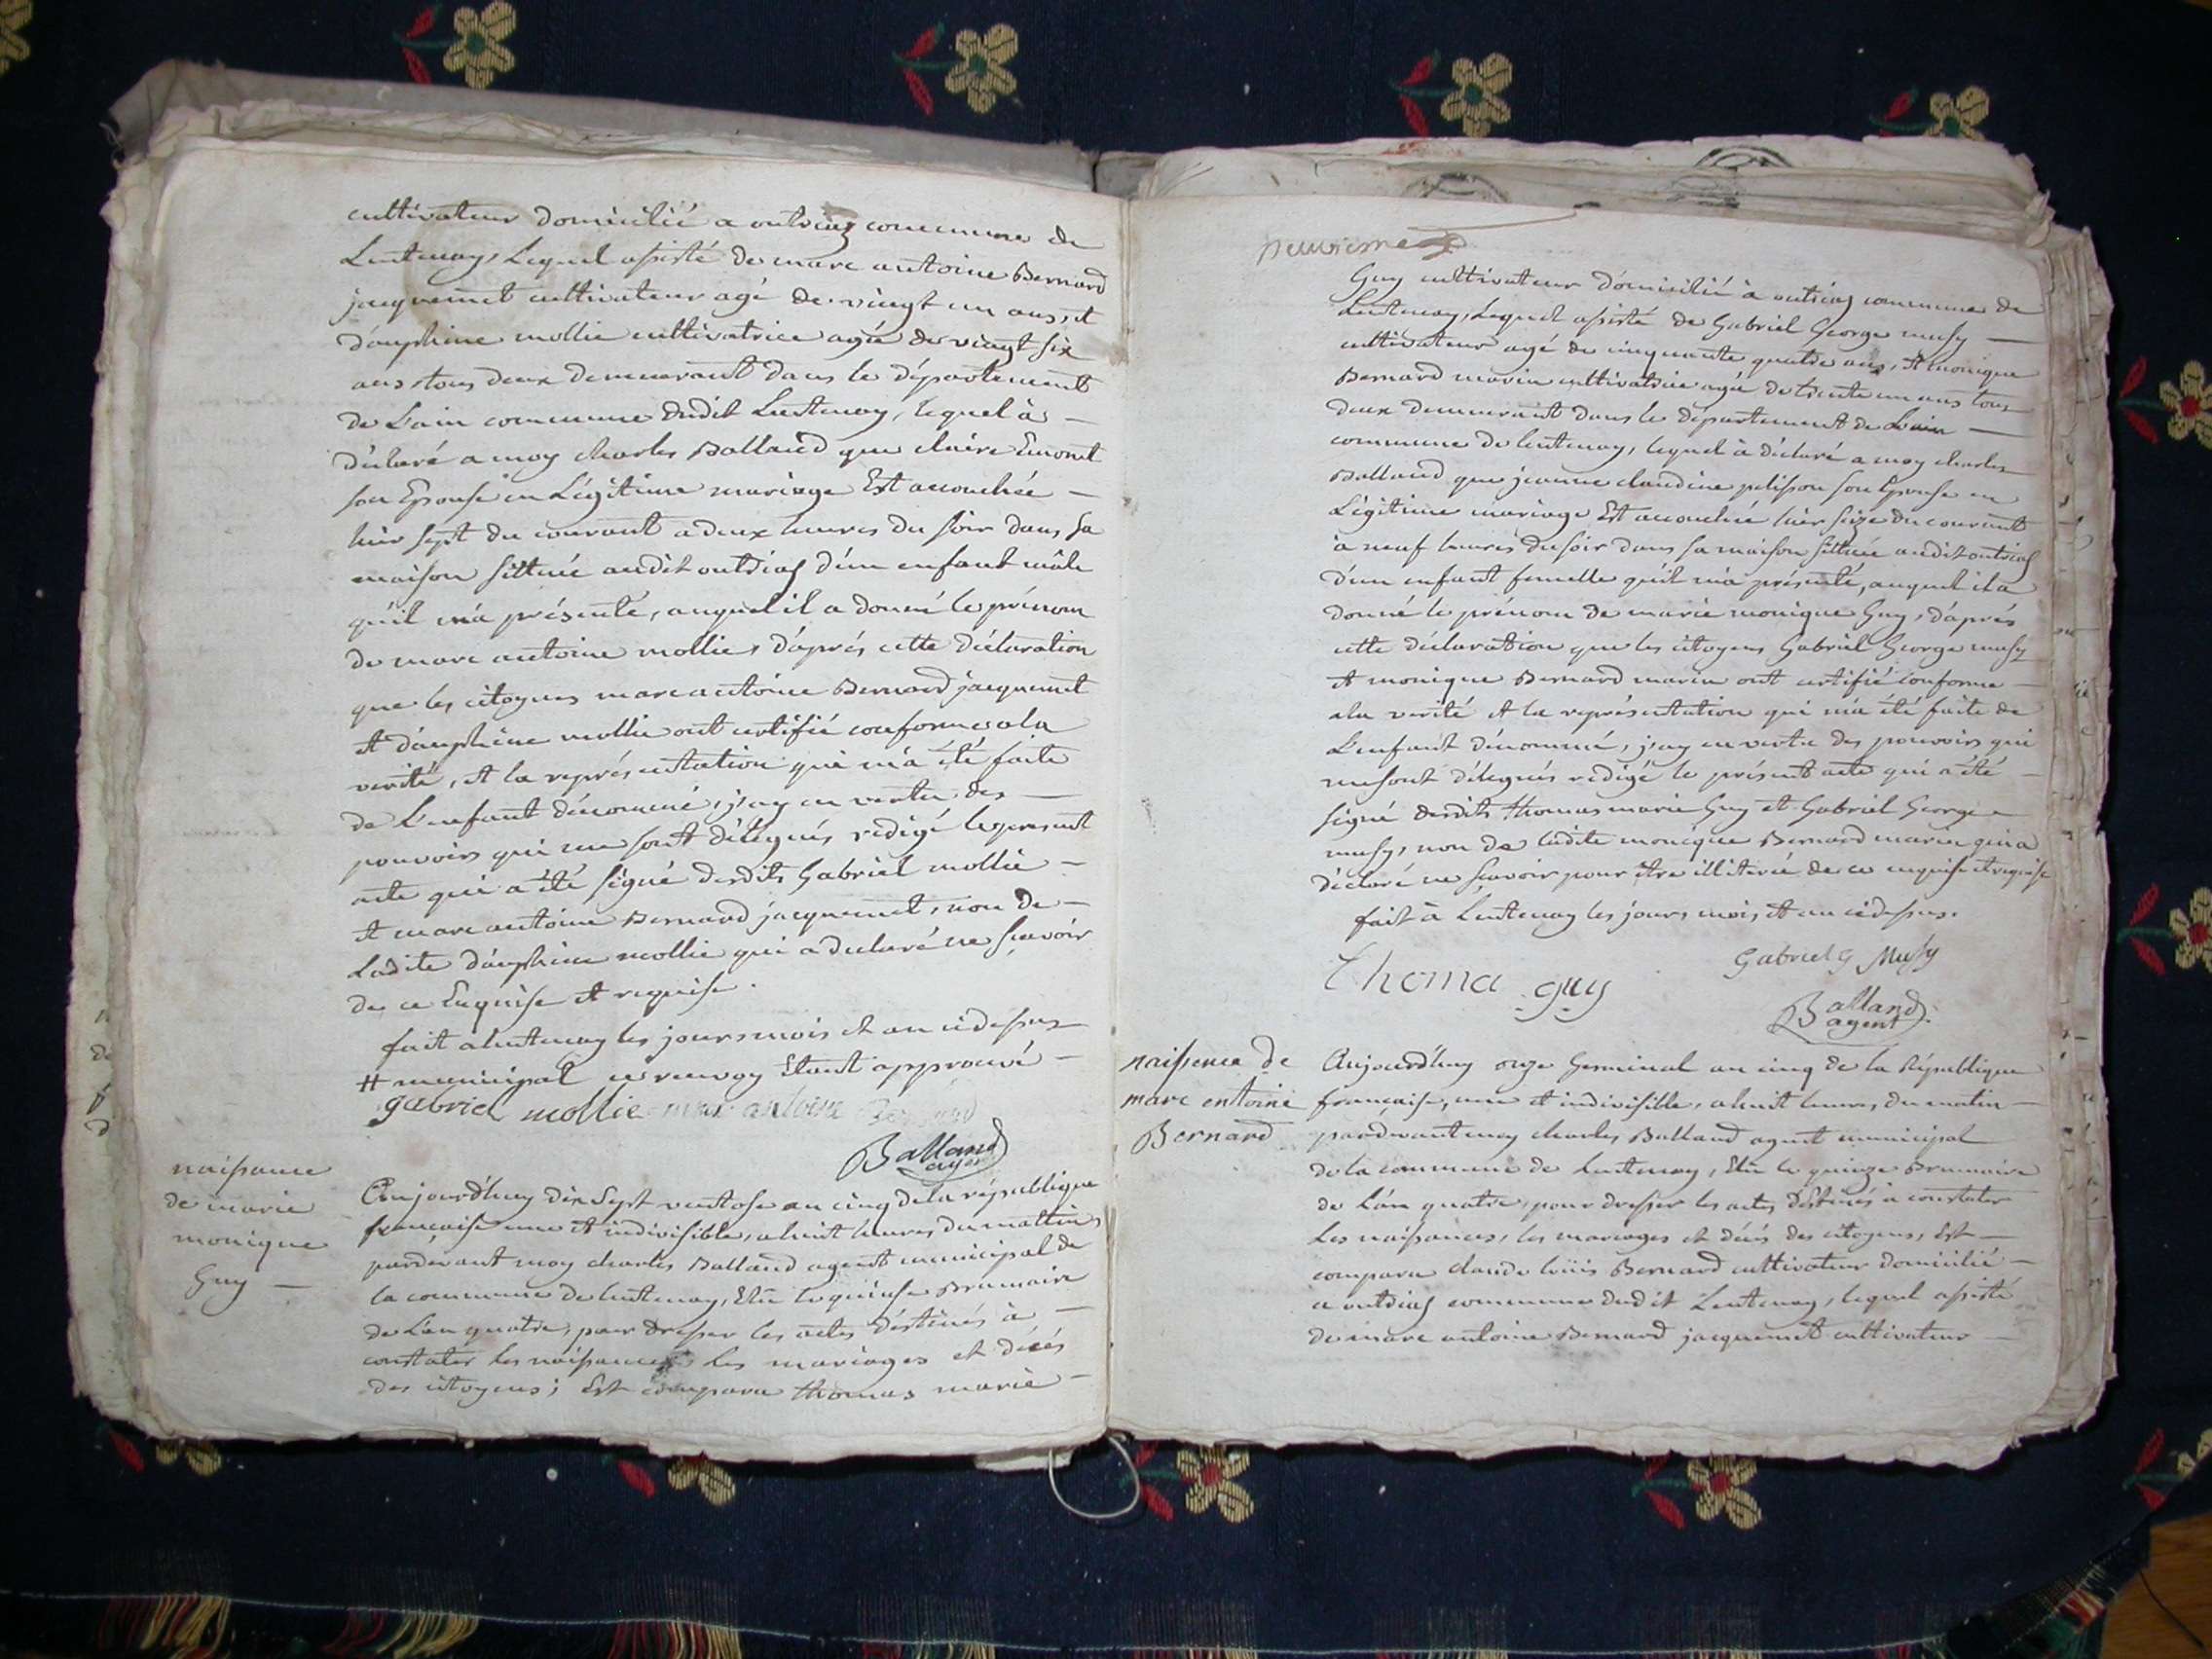 cultivateur domicilié a outriaz commune de
Lentenay, Lequel assisté de marc antoine Bernard
jacquemet cultivateur agé de vingt un ans, et
dauphine mollie cultivatrice agée de vingt six
ans tous deux demeurant dans le département
de L'ain commune dudit Lentenay, lequel à —
déclaré a moy charles Balland que claire Emonet
son Epouse en Légitime mariage Est accouchée —
hier sept du courant a deux heures du soir dans sa
maison sittuée audit outrias d'un enfant mâle
qu'il m'a présenté, auquel il a donné le prénom
de marc antoine mollie, d'aprés cette déclaration
que les citoyens marc antoine Bernard jacquemet
et dauphine mollie ont certifié conforme a la
verité, et la représentation qui m'a été faite
de L'enfant dénommé, j'ay en vertu des —
pouvoirs qui me sont délégués redigé le present
acte qui a été signé desdits Gabriel mollie —
et marc antoine Bernard jacquemet, non de —
Ladite dauphine mollie qui a declaré ne sçavoir
de ce Enquise et requise.
fait a lentenay les jours mois et an cidessus
# municipal ce renvoy Etant approuvé —
gabriel mollie marc antoine Bernard
Balland
agent
naissance
de marie
monique
Guy —
Aujourd'huy dix Sept ventose an cinq de la république
française une et indivisible, a huit heures du mattin,
pardevant moy charles Balland agent municipal de
la commune de lentenay, Elû le quinse Brumaire
de L'an quatre, pour dresser les actes déstinés à —
constater les naissances les mariages et décés
des citoyens; Est comparu thomas marie —
neuvieme
Guy cultivateur domicilié à outrias commune de
Lentenay, Lequel assisté de Gabriel George musy —
cultivateur agé de cinquante quatre ans, et monique
Bernard marin cultivatrice agée de trente un ans tous
deux demeurant dans le département de L'ain —
commune de lentenay, lequel à déclaré a moy charles
Balland que jeanne claudine pelisson son Epouse en
Légitime mariage Est accouchée hier seize du courant
à neuf heures du soir dans sa maison sittuée audit outrias
d'un enfant femelle qu'il m'a présenté, auquel il a
donné le prénom de marie monique Guy, d'aprés
cette déclaration que les citoyens Gabriel George musy
et monique Bernard marin ont certifié conforme —
a la verité et la représentation qui m'a été faite de
L'enfant dénommé, j'ay en vertu des pouvoirs qui
me sont délegués redigé le présent acte qui a été —
signé desdits thomas marie Guy et Gabriel George
musy, non de ladite monique Bernard marin qui a
déclaré ne sçavoir pour être illiterée de ce enquise et requise
fait à Lentenay les jours mois et an cidessus.
Thoma guy
Gabriel G Musy
Balland
agent
naissence de
marc entoine
Bernard
Aujourd'huy onze Germinal an cinq de la République
française, une et indivisible, a huit heures du matin —
pardevant moy charles Balland agent municipal
de la commune de Lentenay, Elû le quinze Brumaire
de L'an quatre, pour dresser les actes déstinés à constater
Les naissances, les mariages et décés des citoyens, Est —
comparu claude loüis Bernard cultivateur domicilié —
a outrias commune dudit Lentenay, lequel assisté
de marc antoine Bernard jacquemet cultivateur —